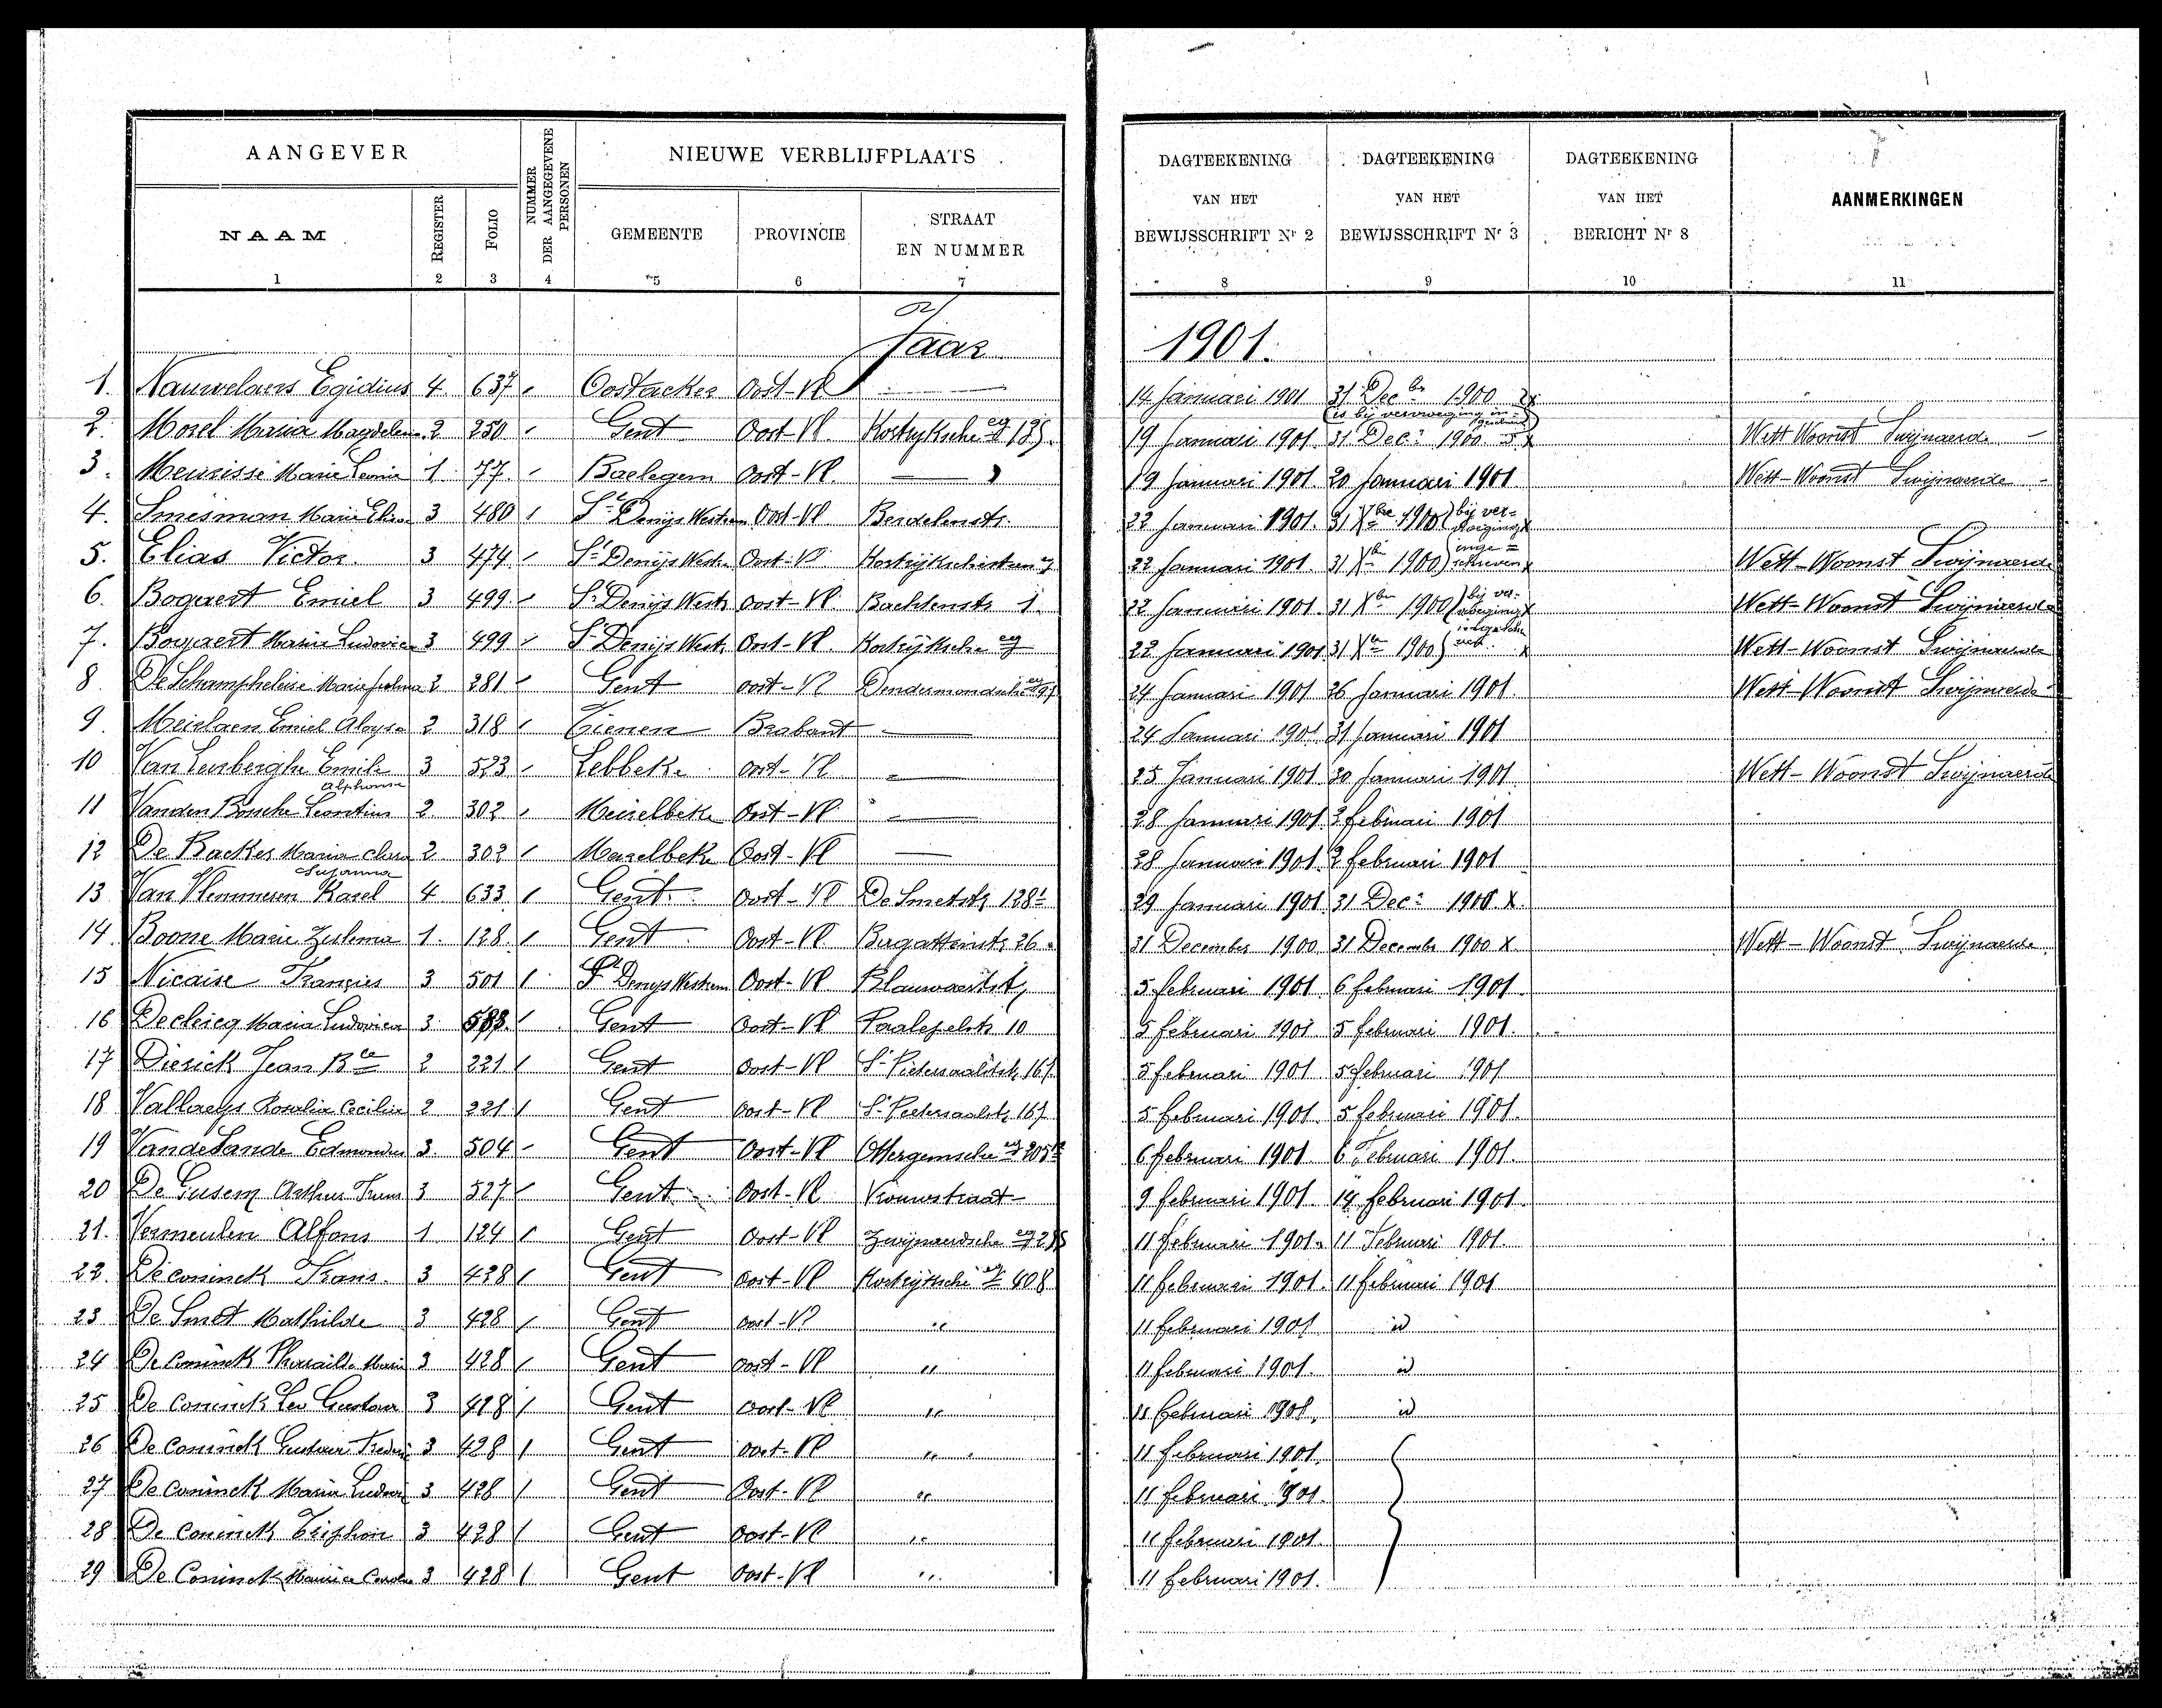 AANGEVER
NUMMER DER AANGEGEVENE PERSONEN
NIEUWE VERBLIJFPLAATS
DAGTEEKENING VAN HET BEWIJSSCHRIFT Nr 2
DAGTEEKENING VAN HET BEWIJSSCHRIFT Nr 3
DAGTEEKENING VAN HET BERICHT Nr 8
AANMERKINGEN
NAAM REGISTER FOLIO GEMEENTE PROVINCIE STRAAT EN NUMMER
1 2 3 4 5 6 7 8 9 10 11
Jaar 1901.
1. Nauwelaers Egidius 4. 637 Oostacker Oost-Vl 14 Januari 1901 31 Decbr 1900 x
(is bij verwijzing in=
2. Morel Maria Magdelen. 2 250 Gent Oost-Vl. Kortryksche 19 Januari 1901. 31 Dec. 1900 x Wett Woonst Swijnaerde
3. Meurisse Marie Leonie 1. 77. Baelegem Oost-Vl. 19 Januari 1901. 20 Januari 1901 Wett-Woonst Swijnaerde
4. Smesman Marie Elisa 3 480 1 St Denijs Westrem Oost-Vl Berdelenstr. 22 Januari 1901 31 Xbre 1900 (bij ver=
5. Elias Victor. 3 474 St Denijs Westr Oost-Vl 22 Januari 1901. 31 Xbr 1900) inge=schreven x Wett-Woonst Swijnaerde
6. Bogaert Emiel 3 499. St Denijs Westr Oost-Vl. Bachtenstr 1. 22 Januari 1901. 31 Xbr 1900 (bij ver- Wett-Woonst Swijnaerde
7. Bogaert Maria Ludovica 3 499 St Denijs Westr Oost-Vl. Kortrijksche 22 Januari 1901 31 Xbr 1900) x Wett-Woonst Swijnaerde
8 De Schampheleire Marie 2 281 Gent Oost-Vl Dendermondsche 24 Januari 1901 26 Januari 1901. Wett-Woonst Swijnaerde
9. Meirlaen Emiel Aloys 2 318 Tienen Brabant 24 Januari 1901 31 Januari 1901
10 Van Lenberghe Emile 3 523 Lebbeke Oost-Vl 25 Januari 1901 30 Januari 1901. Wett-Woonst Swijnaerde
Alphonse
11 Vanden Bossche Leontius 2 302 Meirelbeke Oost-Vl 28 Januari 1901. 2 februari 1901
12 De Backer Maria Clara 2 302 1 Merelbeke Oost-Vl 28 Januari 1901. 2 februari 1901
Susanna
13 Van Vlemmeren Karel 4 633 1 Gent Oost-Vl De Smetstr 128 29 Januari 1901. 31 Dec. 1900 x.
14. Boone Marie Zulema 1. 128. 1 Gent Oost-Vl 26. 31 December 1900 31 December 1900 x. Wett-Woonst Swijnaerde
15 Nicaise François 3 501 1. St Denys Westrem Oost-Vl 5 februari 1901 6 februari 1901
16 Declercq Maria Ludovica 3. 1. Gent Oost-Vl Paalepelstr 10 5 februari 1901 5 februari 1901.
17 Dierick Jean Bte 2 221 Gent Oost-Vl St Pietersaalstr 167 5 februari 1901 5 februari 1901
18 Vallaeys Rosalia Cecilia 2 221. 1 Gent Oost-Vl St Pietersaalstr 167 5 februari 1901. 5 februari 1901.
19 Vande Lande Edmondus 3. 504 Gent Oost-Vl Ottergemsche 6 februari 1901. 6 Februari 1901.
20 De Gusem Arthur 3 527 Gent Oost-Vl Vrouwstraat 9 februari 1901. 14 februari 1901.
21. Vermeulen Alfons 1 124 1 Gent Oost-Vl Zwijnaerdsche 11 februari 1901. 11 Februari 1901.
22. De coninck Frans. 3 428 1 Gent Oost-Vl Kortrijksche 408 11 februari 1901. 11 februari 1901
23 De Smet Mathilde 3 428 Gent Oost-Vl " 11 februari 1901 id
24 De Coninck Marie 3 428 Gent Oost-Vl " 11 februari 1901. id
25 De Coninck Leo Gustave 3 428 1 Gent Oost-Vl " 11 februari 1901. id
26 De Coninck Gustave 3 428 1 Gent Oost-Vl " 11 februari 1901.
27 De Coninck Maria 3 428 1 Gent Oost-Vl " 11 februari 1901.
28 De Coninck Triphon 3 428 1 Gent Oost-Vl " 11 februari 1901.
29 De Coninck 3 428 1 Gent Oost-Vl " 11 februari 1901.